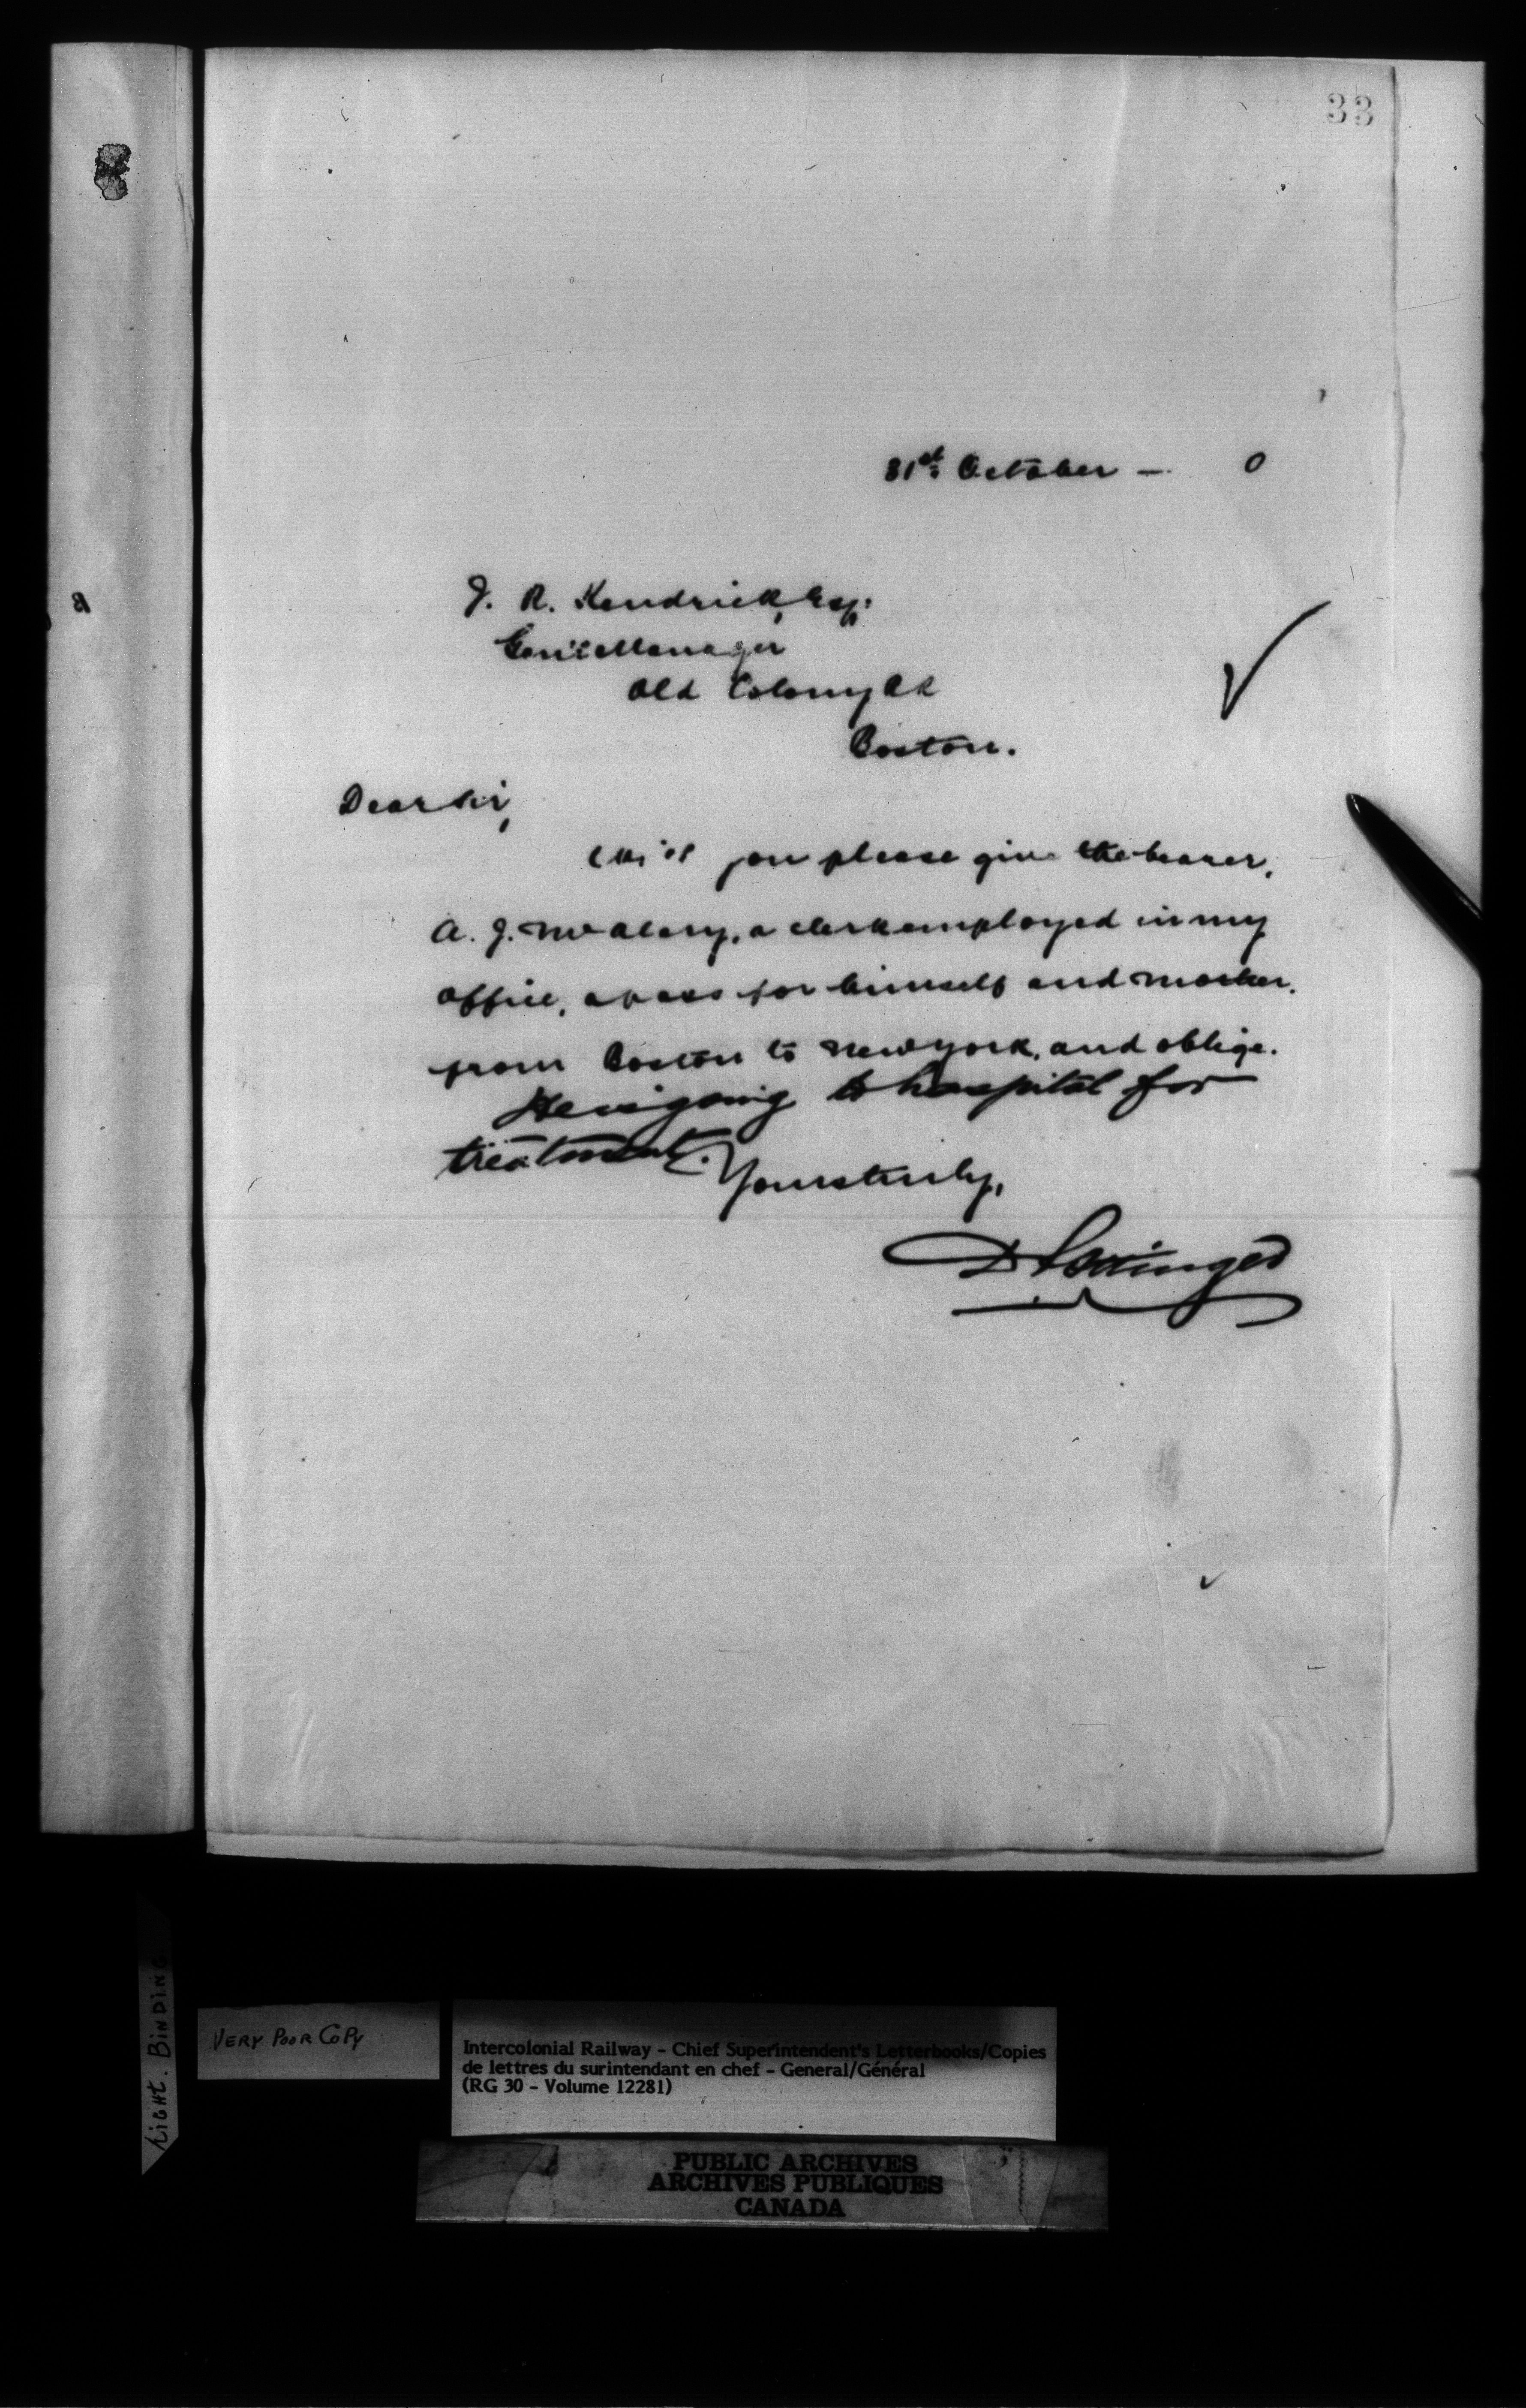 33
31st October — 0
J. R. Kendrick, Esq.
Gen'l Manager
Old Colony RR
Boston.
Dear Sir,
Will you please give the bearer,
A. J. McAlery, a clerk employed in my
office, a pass for himself and mother,
from Boston to New York, and oblige.
He is going to hospital for
treatment.
Yours truly,
D Pottinger
LIGHT. BINDING
VERY POOR COPY
Intercolonial Railway - Chief Superintendent's Letterbooks/Copies
de lettres du surintendant en chef - General/Général
(RG 30 - Volume 12281)
PUBLIC ARCHIVES
ARCHIVES PUBLIQUES
CANADA